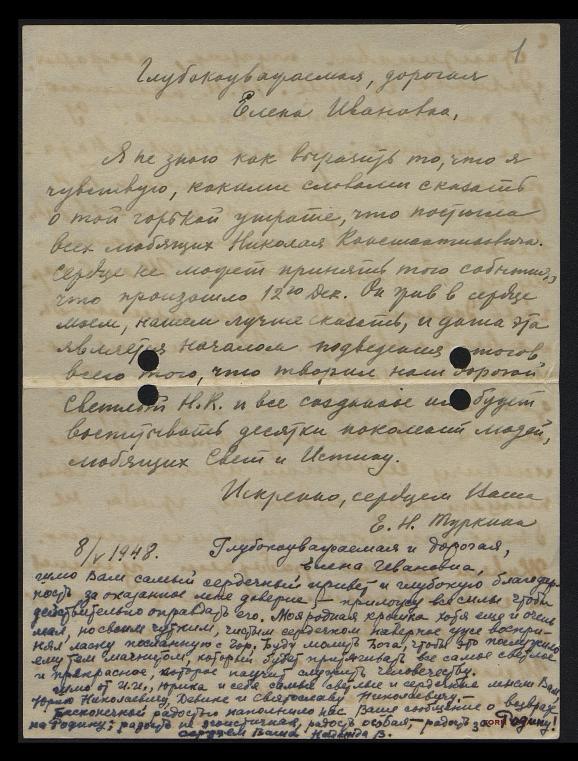 1
Глубокоуважаемая, дорогая
Елена Ивановна,
Я не знаю как выразить то, что я
чувствую, какими словами сказать
о той горькой утрате, что постигла
всех любящих Николая Константиновича.
Сердце не может принять того события,
что произошло 12го Дек. Он жив в сердце
моем, нашем лучше сказать, и дата эта
является началом подведения итогов
всего того, что творил наш дорогой
Светлый Н.К. и все созданное им будет
воспитывать десятки поколений людей,
любящих Свет и Истину.
Искренно, сердцем Ваша
Е. Н. Туркина
8/V 1948. Глубокоуважаемая и дорогая,
Елена Ивановна,
шлю Вам самый сердечный привет и глубокую благодар-
ность за оказанное мне доверие – приложу все силы чтобы
действительно оправдать его. Моя родная крошка хотя еще и очень
мал, но своим чутким, чистым сердечком наверное уже воспри-
нял ласку посланную с Гор. Буду молить Бога, чтобы это послужило
ему тем магнитом, который будет притягивать все самое светлое
и прекрасное, которое научит служить человечеству.
шлю от И.И., Юрика и себя самые светлые и сердечные мысли Вам,
Юрию Николаевичу, Девике и Святославу Николаевичу.
Бесконечной радостью наполнило нас Ваше сообщение о возвра-
на Родину; радость не эгоистичная, радость особая, – радость за Родину!
сердцем Ваша Надежда В.